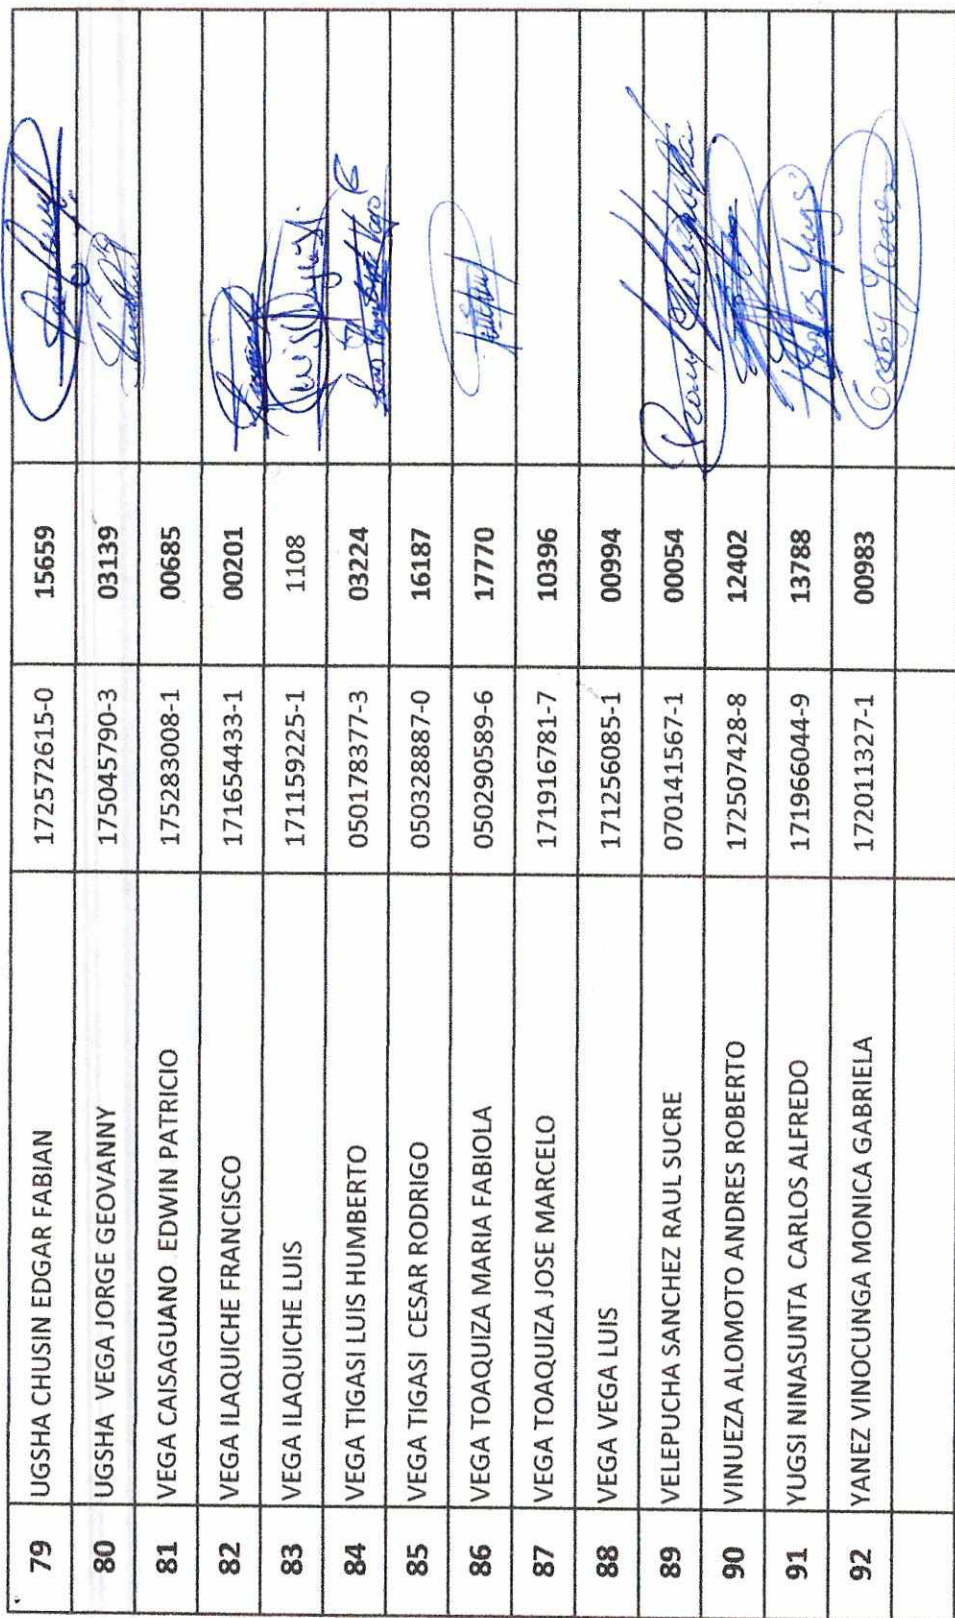 79 UGSHA CHUSIN EDGAR FABIAN 172572615-0 15659
80 UGSHA VEGA JORGE GEOVANNY 175045790-3 03139
81 VEGA CAISAGUANO EDWIN PATRICIO 175283008-1 00685
82 VEGA ILAQUICHE FRANCISCO 171654433-1 00201
83 VEGA ILAQUICHE LUIS 171159225-1 1108
84 VEGA TIGASI LUIS HUMBERTO 050178377-3 03224
85 VEGA TIGASI CESAR RODRIGO 050328887-0 16187
86 VEGA TOAQUIZA MARIA FABIOLA 050290589-6 17770
87 VEGA TOAQUIZA JOSE MARCELO 171916781-7 10396
88 VEGA VEGA LUIS 171256085-1 00994
89 VELEPUCHA SANCHEZ RAUL SUCRE 070141567-1 00054
90 VINUEZA ALOMOTO ANDRES ROBERTO 172507428-8 12402
91 YUGSI NINASUNTA CARLOS ALFREDO 171966044-9 13788
92 YANEZ VINOCUNGA MONICA GABRIELA 172011327-1 00983 Gaby Yanez